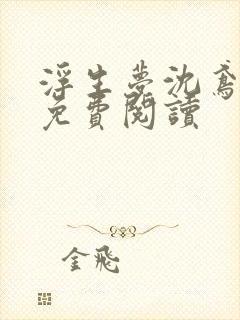 浮生夢沈鳶
免費閱讀
金飛